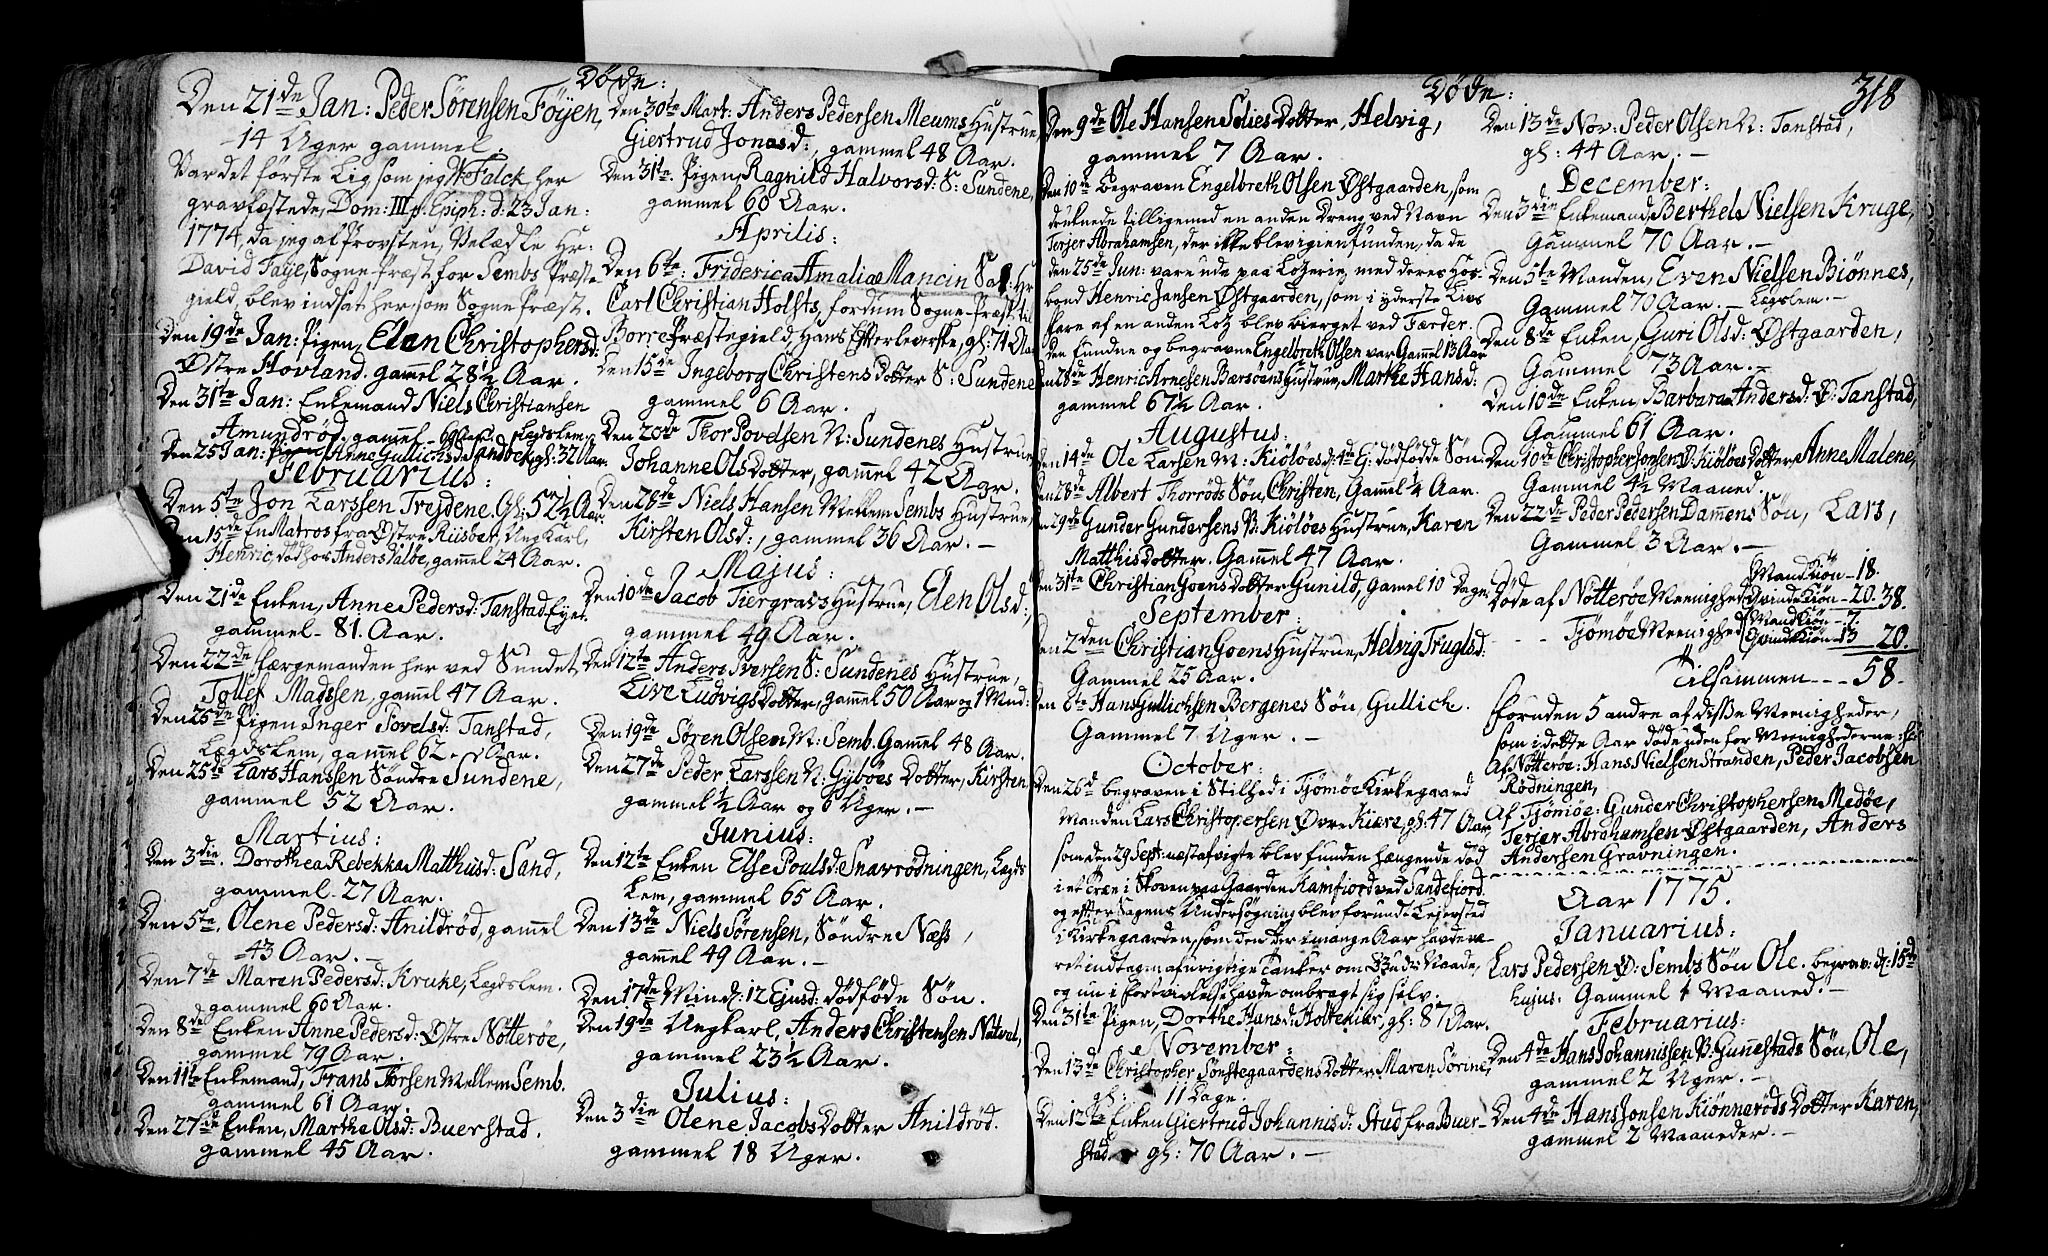 Døde:
Den 21de Jan: Peder Sørensen Føyen,
14 Uger gammel.
Var det første Lig som jeg N Falck, her
gravfæstede, Dom: III p. Epiph: d: 23 Jan:
1774, da jeg af Provsten, Velædle Hr:
David Taye, Sogne-Præst for Sembs Præste-
gield, blev indsat her som Sogne Præst.
Den 19de Jan: Pigen, Elen Christophersd:
Østre Hovland. gam̅el 28½ Aar.
Den 31te Jan: Enkemand Niels Christiansen
Amundrød, gam̅el - 60 Aar. Legdslem.
Den 25 Jan: Pigen Anne Gullichsd: Sandbek gl: 32 Aar.
Februarius:
Den 5te Jon Larssen Trejdene. Gl: 52½ Aar.
Den 15de En Matros fra Østre Riisøer, Ungkarl,
Henric, død hos Anders Dalbe, gam̅el 24 Aar.
Den 21de Enken, Anne Pedersd: Tanstad Eyet.
gammel - 81. Aar.
Den 22de færgemanden her ved Sundet
Tollef Madssen, gam̅el 47 Aar.
Den 25de Pigen Inger Povelsd: Tanstad,
Lægdslem, gam̅el 62 Aar.
Den 25de Lars Hanssen Søndre Sundene,
gammel 52 Aar.
Martius:
Den 3die Dorothea Rebekka Matthiisd: Sand,
gammel. 27 Aar.
Den 5te, Olene Pedersd: Anildrød, gam̅el
43 Aar.
Den 7de Maren Pedersd: Kruke, Legdslem.
gammel 60 Aar.
Den 8de Enken Anne Pedersd: Østre Nøtterøe,
gammel 79 Aar.
Den 11te Enkemand, Frans Thorsen Mellem Semb.
gammel 61 Aar.
Den 27de Enken, Marthe Olsd: Buerstad.
gammel 45 Aar.
Den 30te Mart: Anders Pedersen Meums Hustrue,
Giertrud Jonasd:, gammel 48 Aar.
Den 31te Pigen Ragnild Halvorsd: S: Sundene,
gammel 60 Aar.
Aprilis:
Den 6te: Friderica Amaliæ Mancin Sal: Hr
Carl Christian Holsts, fordum Sogne-Præst til
Borre Præstegield, Hans Efterleverske, gl: 71 Aar
Den 15de Ingeborg Christens Dotter S: Sundene
gammel 6 Aar.
Den 20de Thor Povelsen N: Sundenes Hustrue
Johanne Ols Dotter, gam̅el 42 Aar.
Den 28de Niels Hansen Mellem Sembs Hustrue,
Kirsten Olsd:, gammel 36 Aar.
Majus:
Den 10de Jacob Tiergravs Hustrue, Elen Olsd:,
gammel 49 Aar.
Den 12te Anders Iversen S: Sundenes Hustrue,
Live Ludvigs Dotter, gam̅el 50 Aar og 1 Mnd:
Den 19de Søren Olsen M: Semb. Gam̅el 48 Aar.
Den 27de Peder Larssen N: Gybøes Dotter, Kirsten
gammel ½ Aar og 6 Uger.
Junius:
Den 12te Enken Else Poulsd: Snavrødningen, Lægds
Lem, gammel 65 Aar.
Den 13de Niels Sørensen, Søndre Næss,
gam̅el 49 Aar.
Den 17de Mind: 12 Ejusd: dødføde Søn.
Den 19de Ungkarl, Anders Christensen Natval,
gammel 23½ Aar.
Julius:
Den 3die Olene Jacobs Dotter Anildrød.
gammel 18 Uger.
Døde:
318
Den 9de Ole Hansen Solies Dotter, Helvig,
gammel 7 Aar.
Den 10de begraven Engelbreth Olsen Østgaarden, som
druknede tilligemed en anden Dreng ved Navn
Terjer Abrahamsen, der ikke blev igienfunden, da de
den 25de Jun: vare ude paa Lotzerie, med deres Hos-
bond Henric Jansen Østgaarden, som i yderste Livs
fare af en anden Lotz blev bierget ved Færder.
Den fundne og begravne Engelbreth Olsen var Gammel 13 Aar
Den 28de Henric Arnesen Bærsøens Hustrue, Marthe Hansd:
gammel 67½ Aar.
Augustus:
Den 14de Ole Larsen M: Kiøløes d: 4de Ej: dødfødde Søn.
Den 28de Albert Thorrøds Søn Christen, Gam̅el ¼ Aar.
Den 29de Gunder Gundersens V: Kiøløes Hustrue, Karen
Matthis Dotter. Gam̅el 47 Aar.
Den 31te Christian Goens Dotter Gunild, Gamel 10 Dage.
September:
Den 2den Christian Goens Hustrue, Helvig Truglsd:
Gammel 25 Aar.
Den 8te Hans Gullichsen Bergenes Søn, Gullich.
Gammel 7 Uger.
October:
Den 26d begraven i Stilhed i Tjømøe Kirkegaard
Manden Lars Christopersen Øvre Kiære, gl: 47 Aar,
som den 29 Sept: næstafvigte blev funden hængende død
i et Træe i Skoven paa Gaarden Kamfiord ved Sandefiord.
og efter Sagens Undersøgning blev forundt Leiersted
i Kirkegaarden, som den der i mange Aar havde væ-
ret indtagen af urigtige Tanker om Guds Naade,
og nu i fortvivlelse havde ombragt sig selv.
Den 31te Pigen, Dorthe Hansd: Holtekiær, gl: 87 Aar.
November:
Den 13de Christopher Sønstegaardens Dotter, Maren Sørine,
gl: 11 Dage.
Den 12te Enken Giertrud Johannisd: Stud fra Buer-
stad gl: 70 Aar.
Den 13de Nov: Peder Olsen N: Tanstad,
gl: 44 Aar.
December:
Den 3die Enkemand, Berthel Nielsen Kruge,
Gammel 70 Aar.
Den 5te Manden, Even Nielsen Biønnes,
Gammel 70 Aar. Legslem.
Den 8de Enken, Guri Olsd: Østgaarden,
Gammel 73 Aar.
Den 10de Enken, Barbara Andersd: Ø: Tanstad,
Gammel 61 Aar.
Den 10de Christopher Jonsen Ø: Kiøløes Dotter, Anne Malene,
Gammel 4½ Maaned.
Den 22de Peder Pedersen Dam̅ens Søn, Lars,
Gammel 3 Aar.
Mandkiøn - 18.
Døde af Nøtterøe Meenighed Qvindekiøn - 20. 38.
Mandkiøn - 7.
Tjømøe Meenighed Qvindkiøn - 13 20.
Tilsammen - - - 58.
foruden 5 andre af disse Meenigheder,
som i dette Aar døde uden for Meenighederne:
Af Nøtterøe: Hans Nielsen Stranden, Peder Jacobsen
Rødningen,
Af Tjømøe: Gunder Christophersen Medøe,
Terjer Abrahamsen Østgaarden, Anders
Andersen Gravningen.
Aar 1775.
Januarius:
Lars Pedersen Ø: Sembs Søn Ole. begrav: d: 15de
hujus. Gammel 1 Maaned.
Februarius:
Den 4de Hans Johannissen V: Gun̅estads Søn, Ole,
gammel 2 Uger.
Den 4de Hans Jonsen Kiønnerøds Dotter Karen,
gammel 2 Maaneder.